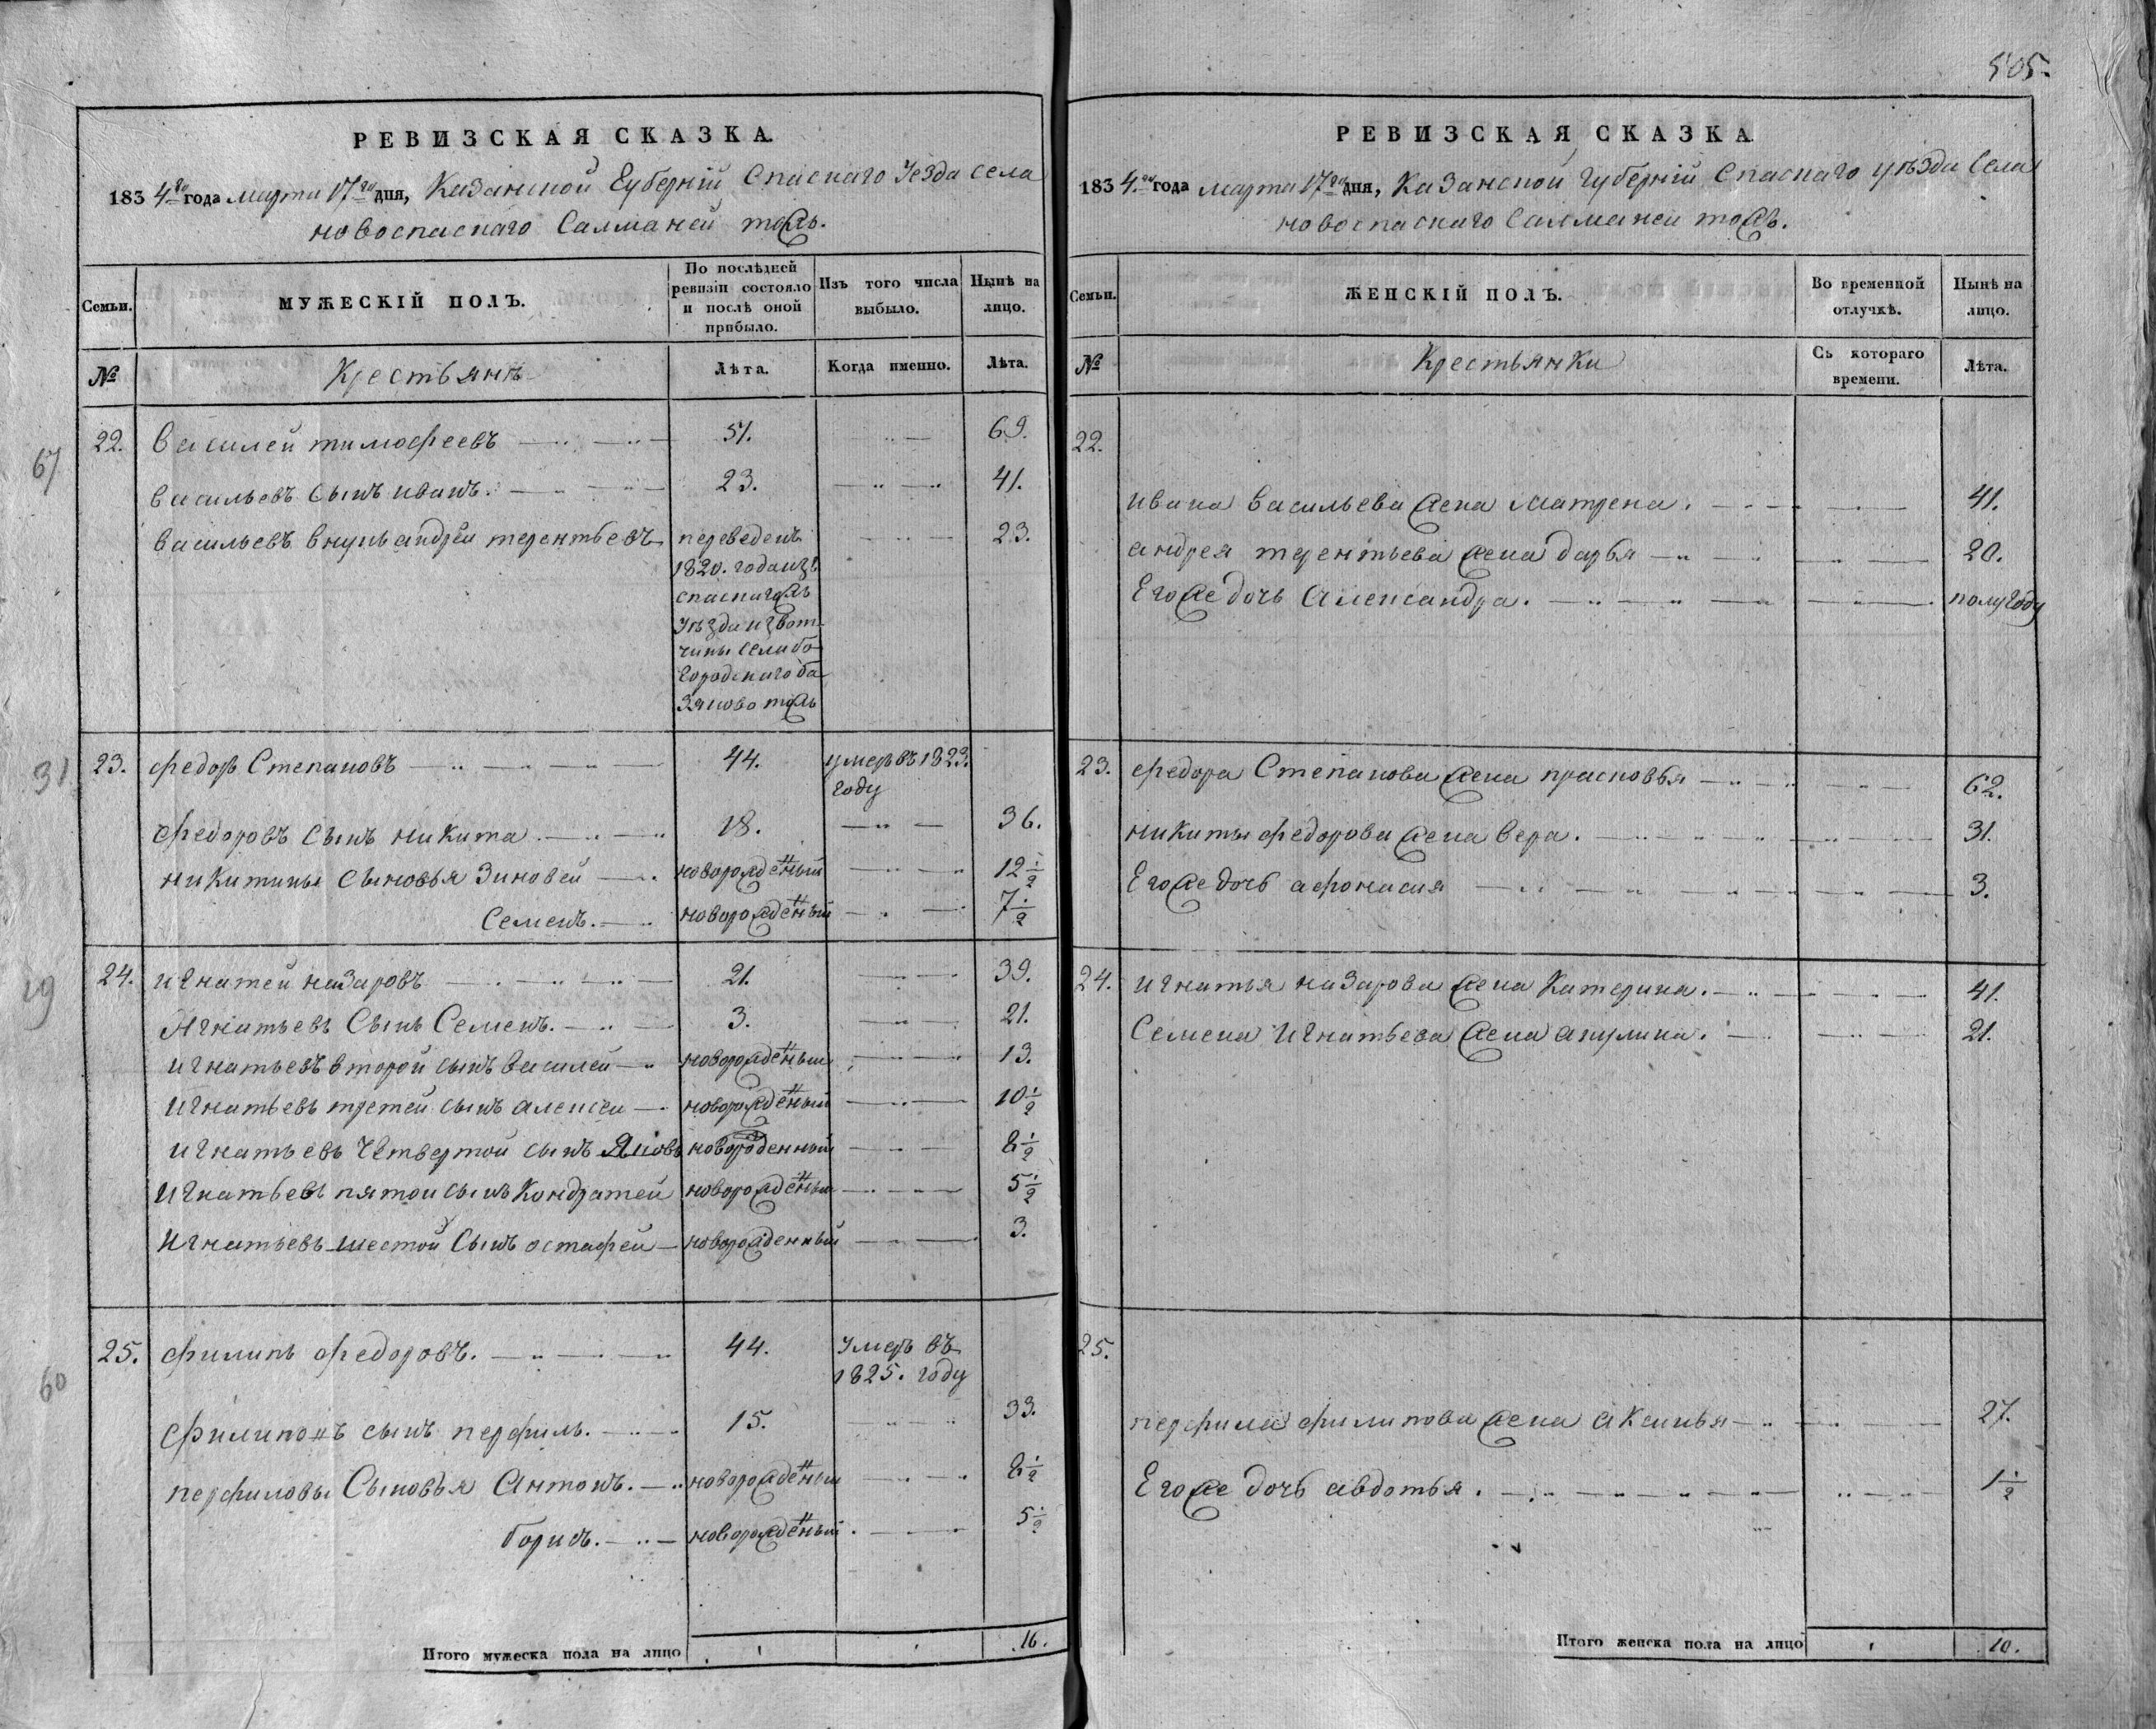 РЕВИЗСКАЯ СКАЗКА.
1834го года марта 17го дня, Казанской Губернїй Спаскаго Уезда села
новоспаскаго Салманей тожъ.
Семьи. МУЖЕСКІЙ ПОЛЪ. По послѣдней ревизіи состояло и послѣ оной прибыло. Изъ того числа выбыло. Нынѣ на лицо.
№ Крестьянѣ Лѣта. Когда именно. Лѣта.
67
22. василей тимофеевъ 51. 69.
васильевъ сынъ иванъ. 23. 41.
васильевъ внукъ андрей терентьевъ переведенъ 23.
1820. года изъ
спаскагожъ
уѣзда из вот-
чины села бо-
городскаго ба-
зяково тожъ
31
23. федоръ Степановъ 44. умеръ въ 1823.
году
федоровъ сынъ никита 18. 36.
никитины сыновья Зиновей новорожденный 12 1/2
Семенъ. новорожденный 7 1/2
19
24. игнатей назаровъ 21. 39.
Игнатьевъ Сынъ Семенъ. 3. 21.
игнатьевъ второй сынъ василей новорожденный 13.
игнатьевъ третей сынъ алексеи новорожденный 10 1/2
игнатьевъ четвертой сынъ Яковъ новорожденный 8 1/2
игнатьевъ пятои сынъ Кондратеи новорожденный 5 1/2
игнатьевъ шестой Сынъ остафеи новорожденный 3.
60
25. филипъ федоровъ. 44. Умеръ въ
1825. году
филиповъ сынъ перфилъ. 15. 33.
перфиловы Сыновья Антонъ. новорожденный 8 1/2
борисъ. новорожденный 5 1/2
Итого мужеска пола на лицо 16.
505.
РЕВИЗСКАЯ СКАЗКА.
1834.го года марта 17го дня, Казанской губернїй Спаскаго уѣзда Села
новоспаскаго Салманеи тожъ.
Семьи. ЖЕНСКІЙ ПОЛЪ. Во временной отлучкѣ. Нынѣ на лицо.
№ Крестьянки Съ котораго времени. Лѣта.
22.
ивана васильева жена матрена. 41.
андрея терентьева жена дарья 20.
Егоже дочь александра. полугоду
23. федора Степанова жена прасковья 62.
никиты федорова жена вера. 31.
Егоже дочь афонасия 3.
24. игнатья назарова жена Катерина. 41.
Семена игнатьева жена акулина. 21.
25.
перфила филипова жена аксинья 27.
Егоже дочь авдотья. 1 1/2
Итого женска пола на лицо 10.